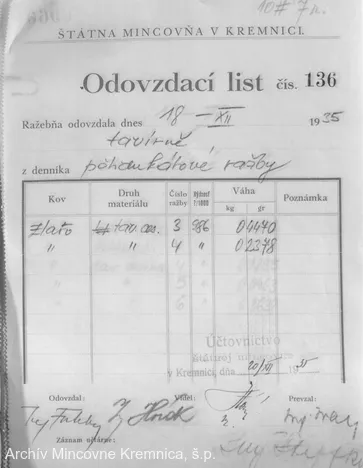 ŠTÁTNA MINCOVŇA V KREMNICI.
Odovzdací list čís. 136
Ražebňa odovzdala dnes 18 - XII 1935
tavirně
z denníka päťdukátové ražby
Kov Druh materiálu Číslo ražby Rýdzosť 1/1000 Váha kg gr Poznámka
Zlato 3 986 0 4470
" " 4 " 0 2378
Účtovníctvo
Štátnej mincovne
v Kremnici, dňa 20/XII 1935
Odovzdal: Videl: Prevzal:
Záznam účtárne:
Archív Mincovne Kremnica, š.p.